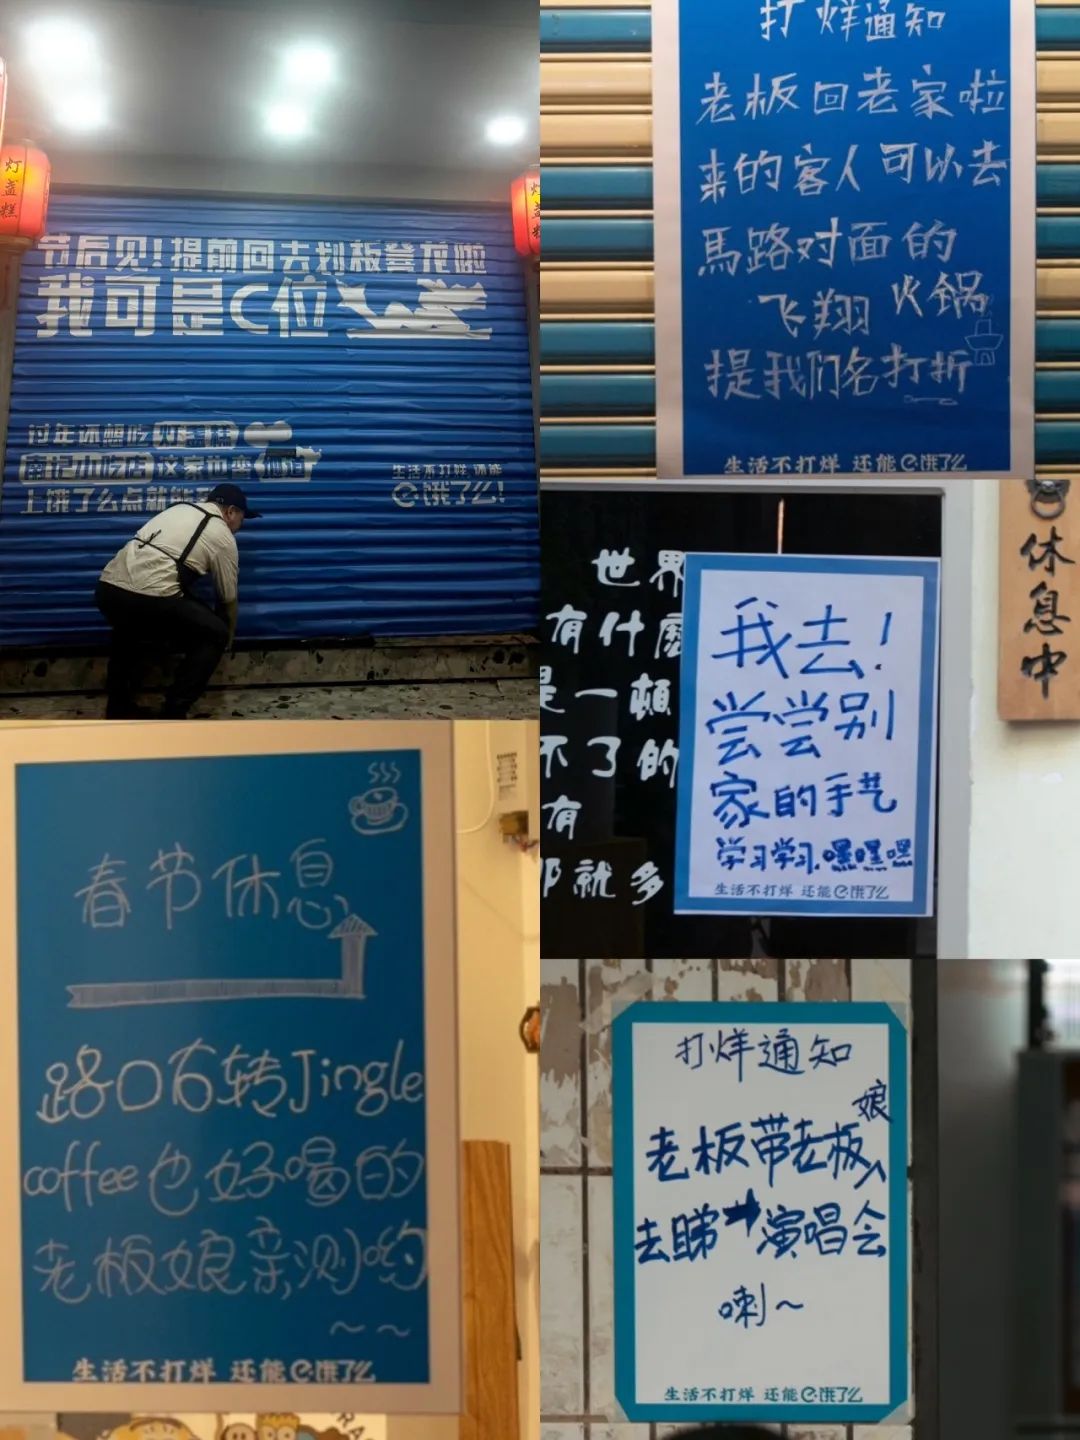 灯盏糕
节后见！提前回去划板凳龙啦
我可是C位
过年还想吃灯盏糕
南记小吃店 这家也蛮
上饿了么点就能
生活不打烊 还能
饿了么！
打烊通知
老板回老家啦
来的客人可以去
馬路对面的
飞翔火锅
提我们名打折
生活不打烊 还能饿了么
世界
有什麼
是一頓
不了的
有
那就多
我去！
尝尝别
家的手艺
学习学习.嘿嘿嘿
生活不打烊 还能饿了么
休息中
春节休息
路口右转Jingle
coffee也好喝的
老板娘亲测哟
~ ~
生活不打烊 还能饿了么
打烊通知
老板带老板娘
去睇演唱会
喇~
生活不打烊 还能饿了么